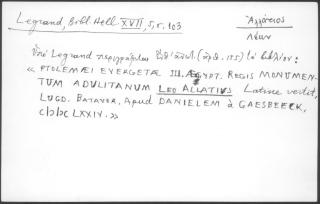 Legrand, Bibl. Hell. XVII, 5, σ. 103
Ἀλλάτιος
Λέων
Ὑπὸ Legrand περιγράφεται (ἀρθ. 155) τὸ βιβλίον:
« PTOLEMÆI EVERGETÆ III. ÆGYPT. REGIS MONUMEN-
TUM ADULITANUM LEO ALLATIUS Latine vertit,
LUGD. BATAVOR. Apud DANIELEM à GAESBEECK,
CIƆIƆC LXXIV. »